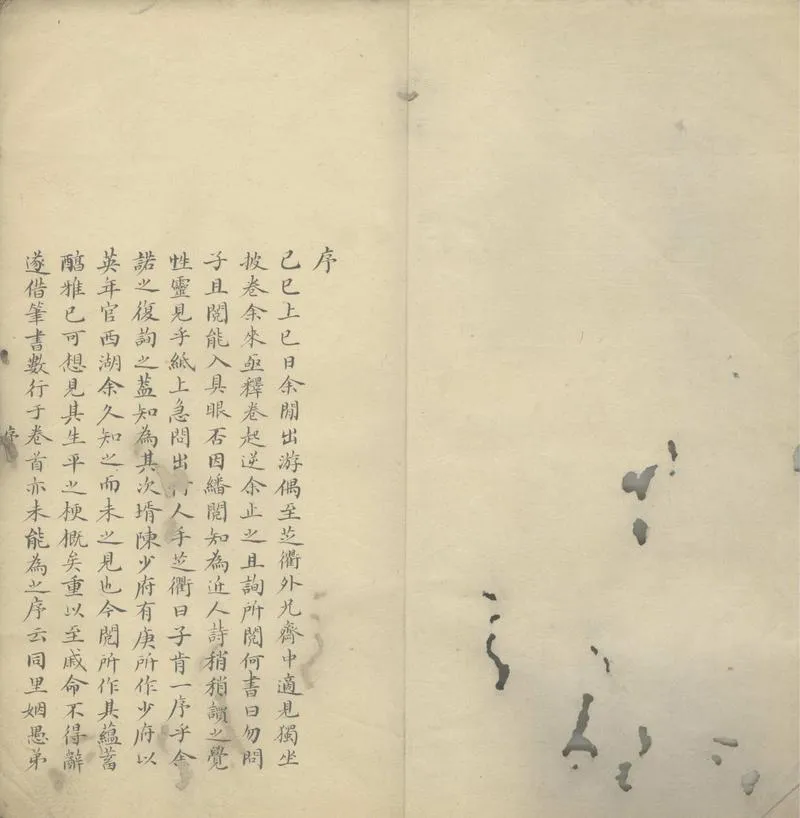 序
己巳上巳日余閒出游偶至芝衢外兄齋中適見獨坐
披卷余來亟釋卷起逆余止之且詢所閱何書曰勿問
子且閱能入具眼否因繙閱知為近人詩稍稍讀之覺
性靈見乎紙上急問出何人手芝衢曰子肯一序乎余
諾之復詢之蓋知為其次壻陳少府有庚所作少府以
英年官西湖余久知之而未之見也今閱所作其蘊蓄
醕雅已可想見其生平之梗概矣重以至戚命不得辭
遂借筆書數行于卷首亦未能為之序云同里姻愚弟
序